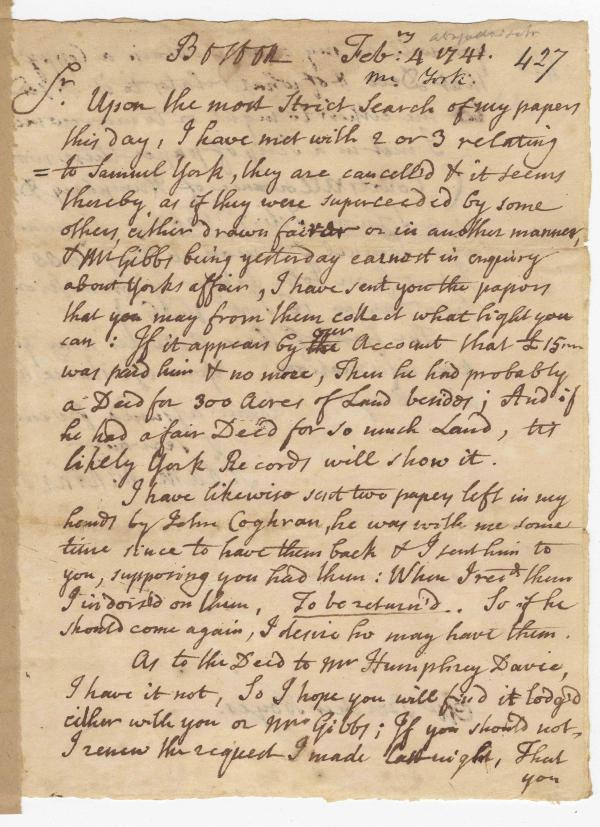 Boston Feb:ry 4 1741. 427
Mr York.
Sr. Upon the most Strict Search of my papers
this day, I have met with 2 or 3 relating
= to Samuel York, they are cancelled & it seems
thereby as if they were superceeded by some
others, either drawn fairer or in another manner,
& Mr Gibbs being yesterday earnest in enquiry
about Yorks affair, I have sent you the papers
that you may from them collect what light you
can: If it appears by the our Account that £15
was paid him & no more, Then he had probably
a Deed for 300 Acres of Land besides; And if
he had a fair Deed for so much Land, tis
likely York Records will show it.
I have likewise sent two papers left in my
hands by John Coghran, he was with me some
time since to have them back & I sent him to
you, supposing you had them: When I recd. them
I indorsed on them, To be return'd.. So if he
should come again, I desire he may have them.
As to the Deed to Mr Humphrey Davie,
I have it not, So I hope you will find it lodg'd
either with you or Mrs Gibbs; If you should not,
I renew the request I made last night, That
you